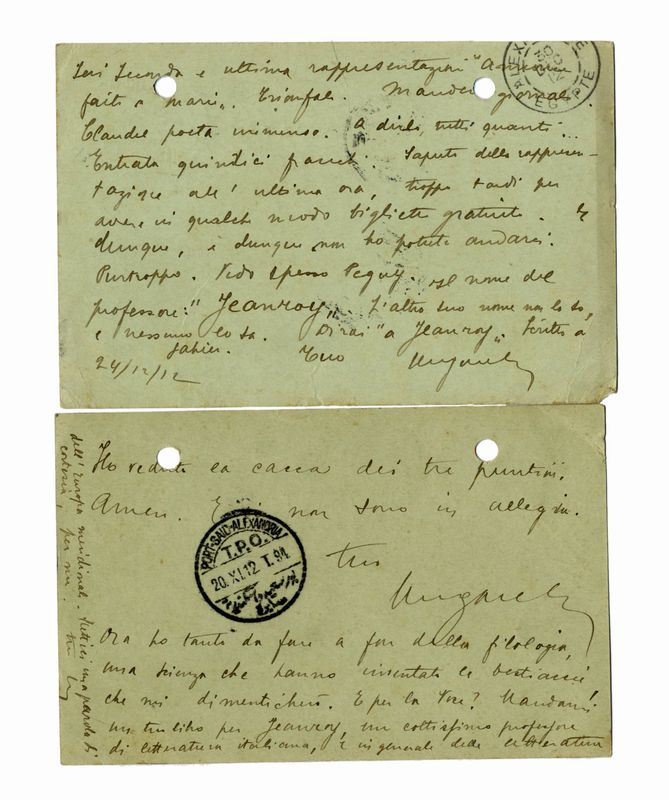 Ieri seconda e ultima rappresentazioni "Annunc
fatta a Maria". Trionfale. Mandero giornale.
Claudel poeta immenso. A dirla, tutti quanti...
Entrata quindici franchi. Saputo della rappresen-
tazione all'ultima ora, troppo tardi per
avere in qualche modo biglietti gratuito. E
dunque, e dunque non ho potuto andarci.
Purtroppo. Vedo spesso Peguy. Il nome del
professore: "Jeanroy". L'altro suo nome non lo so,
e nessuno lo sa. Dirai "a Jeanroy". Scritto a
Jahier. Tuo Ungaretti
24/12/12
ALEX EGYPTE
Ho veduto la caccia dei tre puntini.
Amen. E non sono in allegria.
tuo
Ungaretti
PORT-SAID-ALEXANDRIA
T.P.O.
20.XI.12 T.94
Ora ho tanto da fare a far della filologia,
una scienza che hanno inventato le bestiaccie
che noi dimenticherò. E per la Voce? Mandami
un tuo libro per Jeanroy, un coltissimo professore
di letteratura italiana, e in generale delle letterature
dell'Europa meridionale. Mettici una parola di
cortesia, per me. tuo U